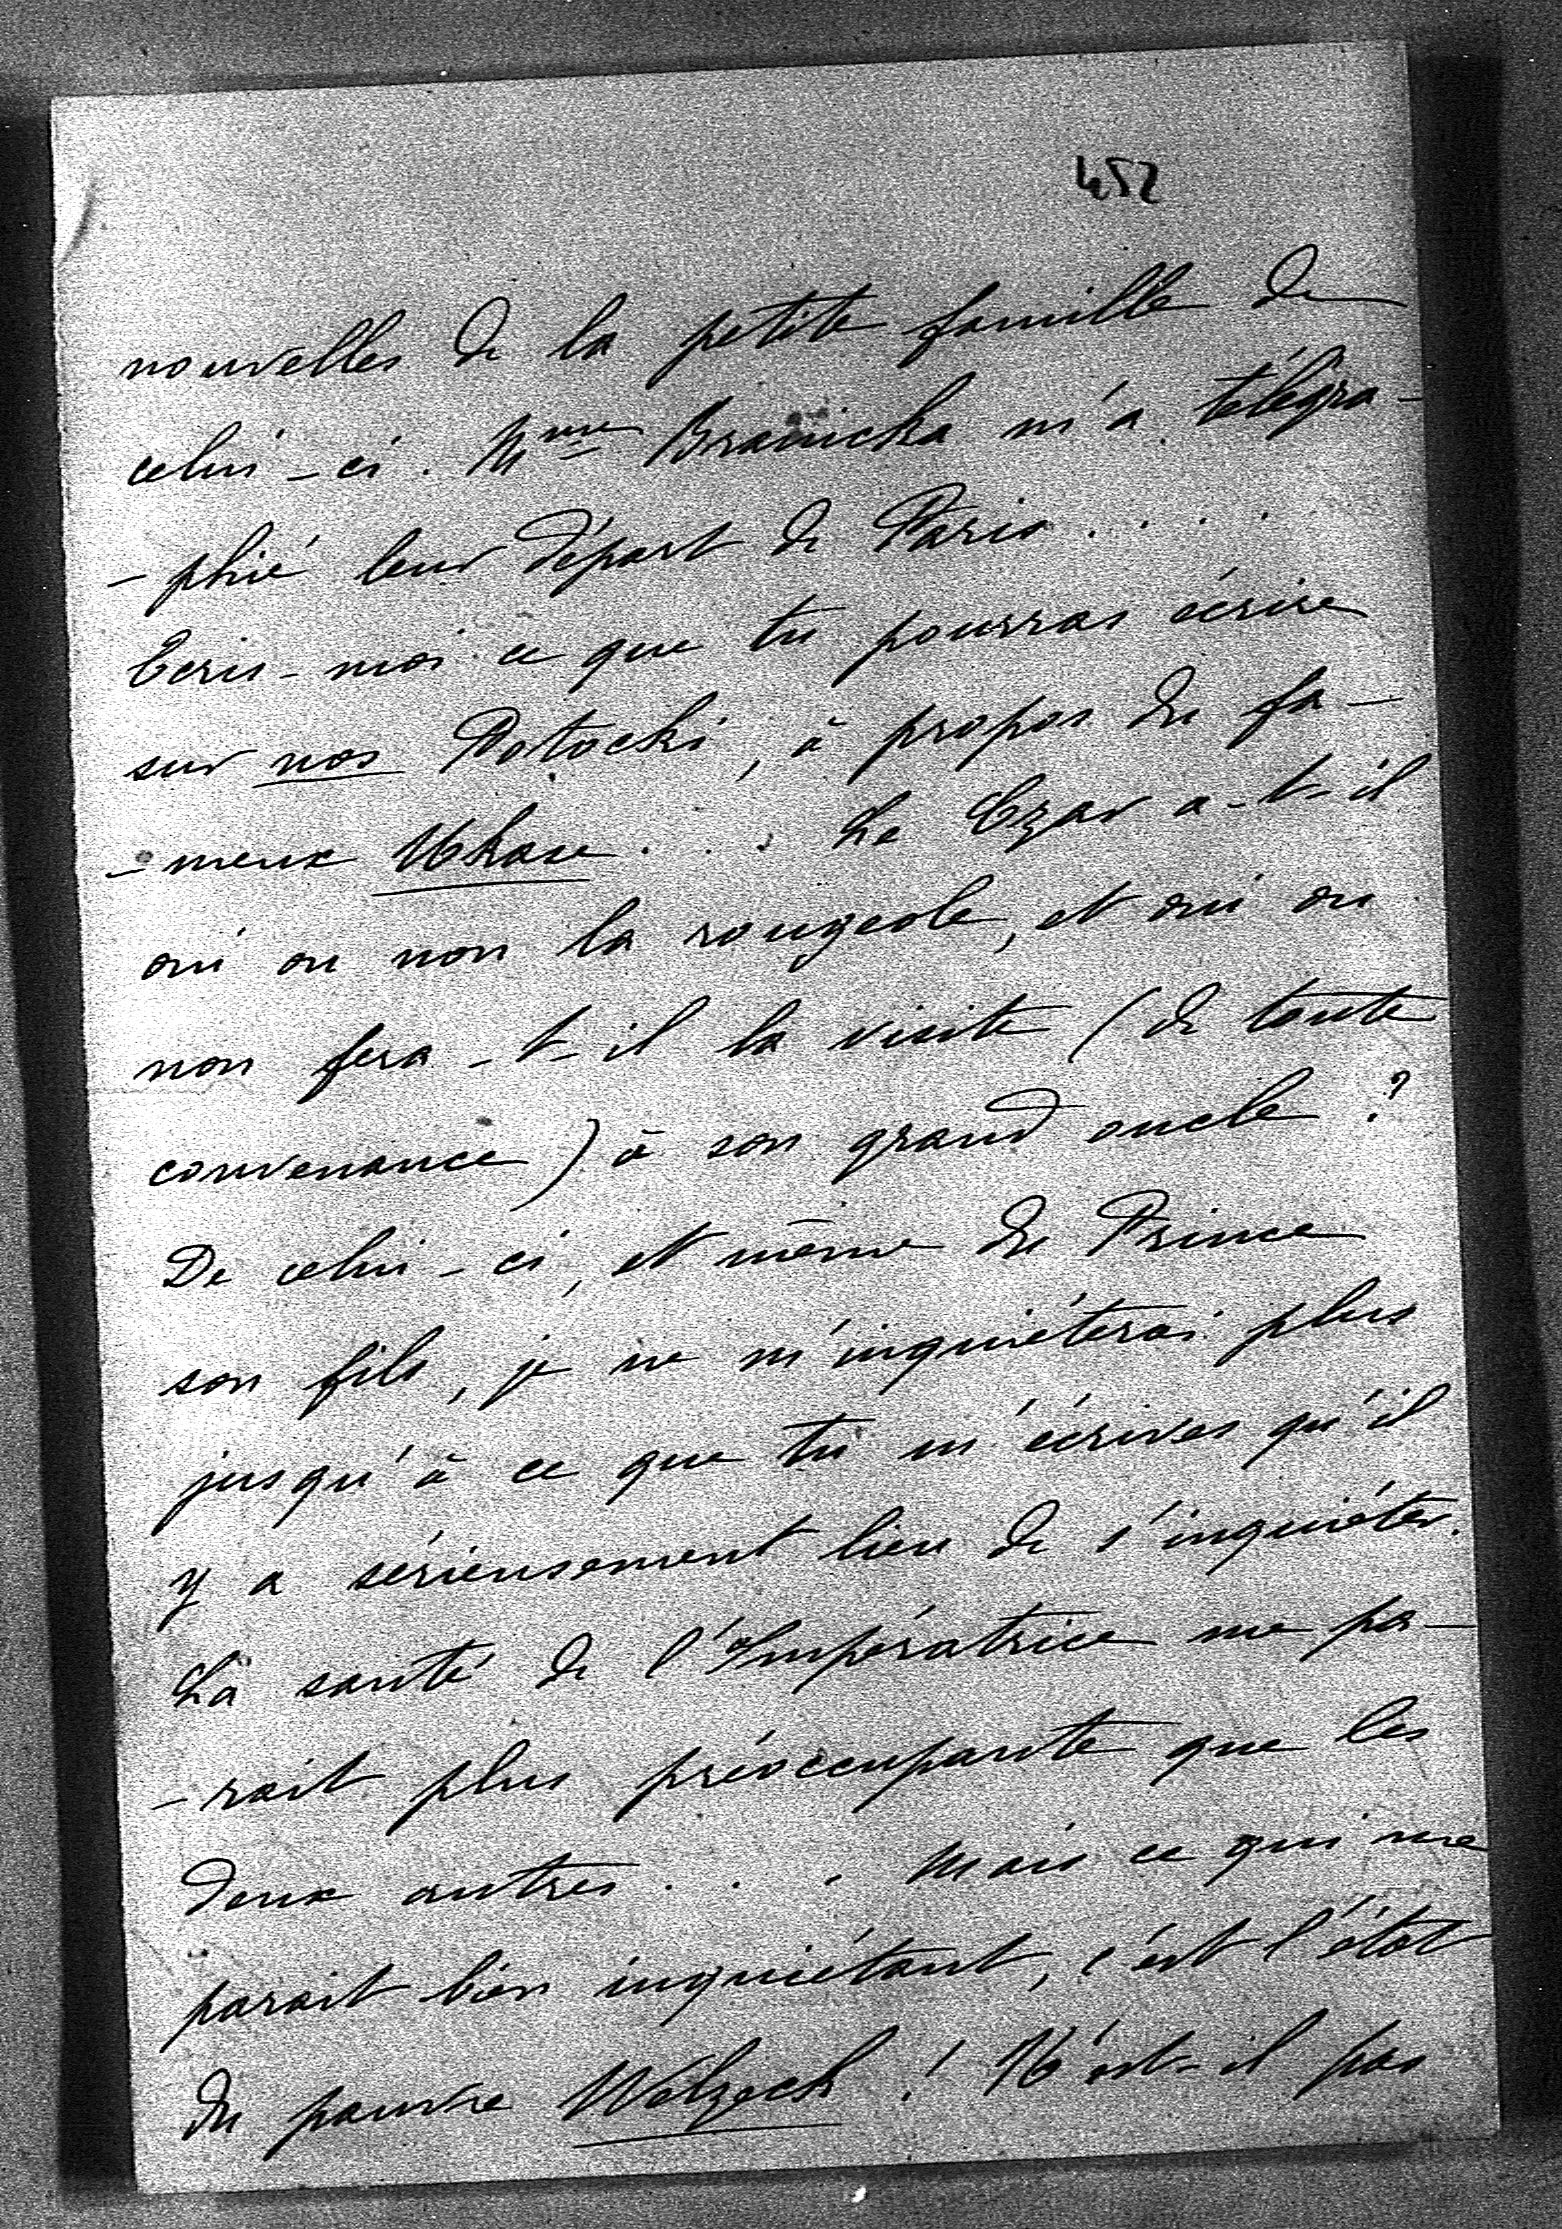 452
nouvelles de la petite famille de
celui-ci. Mme Branicka m'a télégra-
-phié leur départ de Paris....
Ecris-moi ce que tu pourras écrire
sur nos Potocki, à propos du fa-
-meux Ukase... Le Czar a-t-il
oui ou non la rougeole, et oui ou
non fera-t-il la visite (de toute
convenance) à son grand oncle?
De celui-ci, et même du Prince
son fils, je ne m'inquiéterai plus
jusqu'à ce que tu m'écrives qu'il
y a sérieusement lieu de s'inquiéter.
La santé de l'Impératrice me pa-
-rait plus préoccupante que les
deux autres... Mais ce qui me
parait bien inquiétant, c'est l'état
du pauvre Welzeck! N'est-il pas